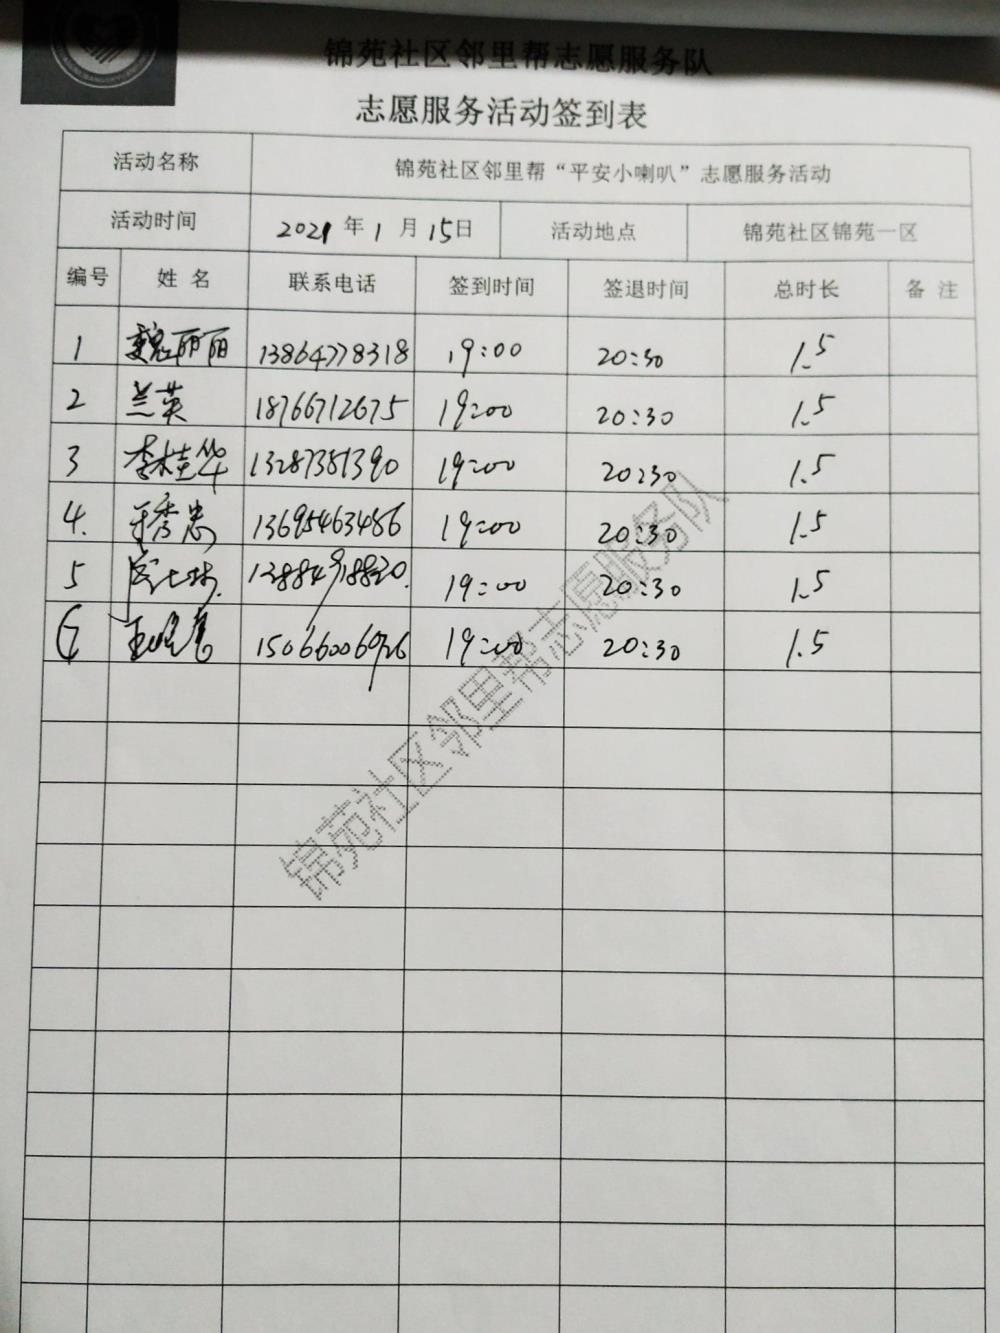 锦苑社区邻里帮志愿服务队
志愿服务活动签到表
活动名称 锦苑社区邻里帮“平安小喇叭”志愿服务活动
活动时间 2021年1月15日 活动地点 锦苑社区锦苑一区
编号 姓名 联系电话 签到时间 签退时间 总时长 备注
1 魏丽丽 13864778318 19:00 20:30 1.5
2 兰英 18766712675 19:00 20:30 1.5
3 李桂华 13287381390 19:00 20:30 1.5
4. 于秀忠 13695463486 19:00 20:30 1.5
5 19:00 20:30 1.5
6 19:00 20:30 1.5
锦苑社区邻里帮志愿服务队